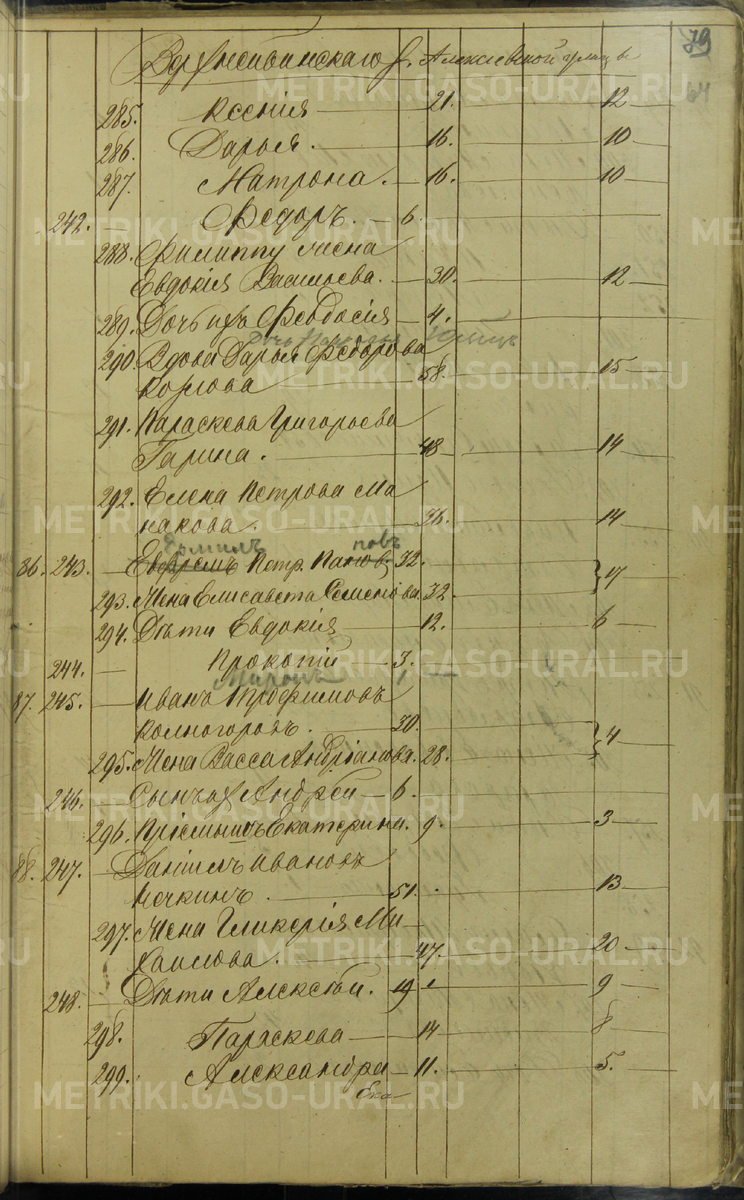 79
64
Алексѣевской улицы
285. Ксенія 21. 12
286. Дарья. 16. 10
287. Матрона. 16. 10
242. Ѳедоръ. 6.
288. Филиппу жена
Евдокія Васильева. 30. 12
289. Дочь ихъ Ѳеодосія 4.
290. Вдова Дарья Ѳедорова
Козлова 58. 15
291. Параскева Григорьева
Гарина. 48 14
292. Елена Петрова Ма
накова. 36. 14
86. 243. Евфремъ Петр. Пановъ 32.
293. Жена Елисавета Семенова. 32. 17
294. Дѣти Евдокія 12. 6
244. Прокопій 3.
Миронъ
87. 245. Иванъ Трофимовъ
Колногоровъ. 30.
295. Жена Васса Андріанова. 28. 4
246. Сынъ их Андрей 6.
296. Пріемышъ Екатерина. 9. 3
88. 247. Даніилъ Ивановъ
Нечкинъ. 51. 13
297. Жена Гликерія Ми
хаилова. 47. 20
248. Дѣти Алексѣй. 19 9
298. Параскева 14 8
299. Александра 11. 5.
Ека
METRIKI.GASO-URAL.RU